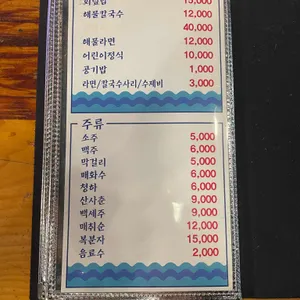 회덮밥 15,000
해물칼국수 12,000
40,000
해물라면 12,000
어린이정식 10,000
공기밥 1,000
라면/칼국수사리/수제비 3,000
주류
소주 5,000
맥주 6,000
막걸리 5,000
매화수 6,000
청하 6,000
산사춘 9,000
백세주 9,000
매취순 12,000
복분자 15,000
음료수 2,000